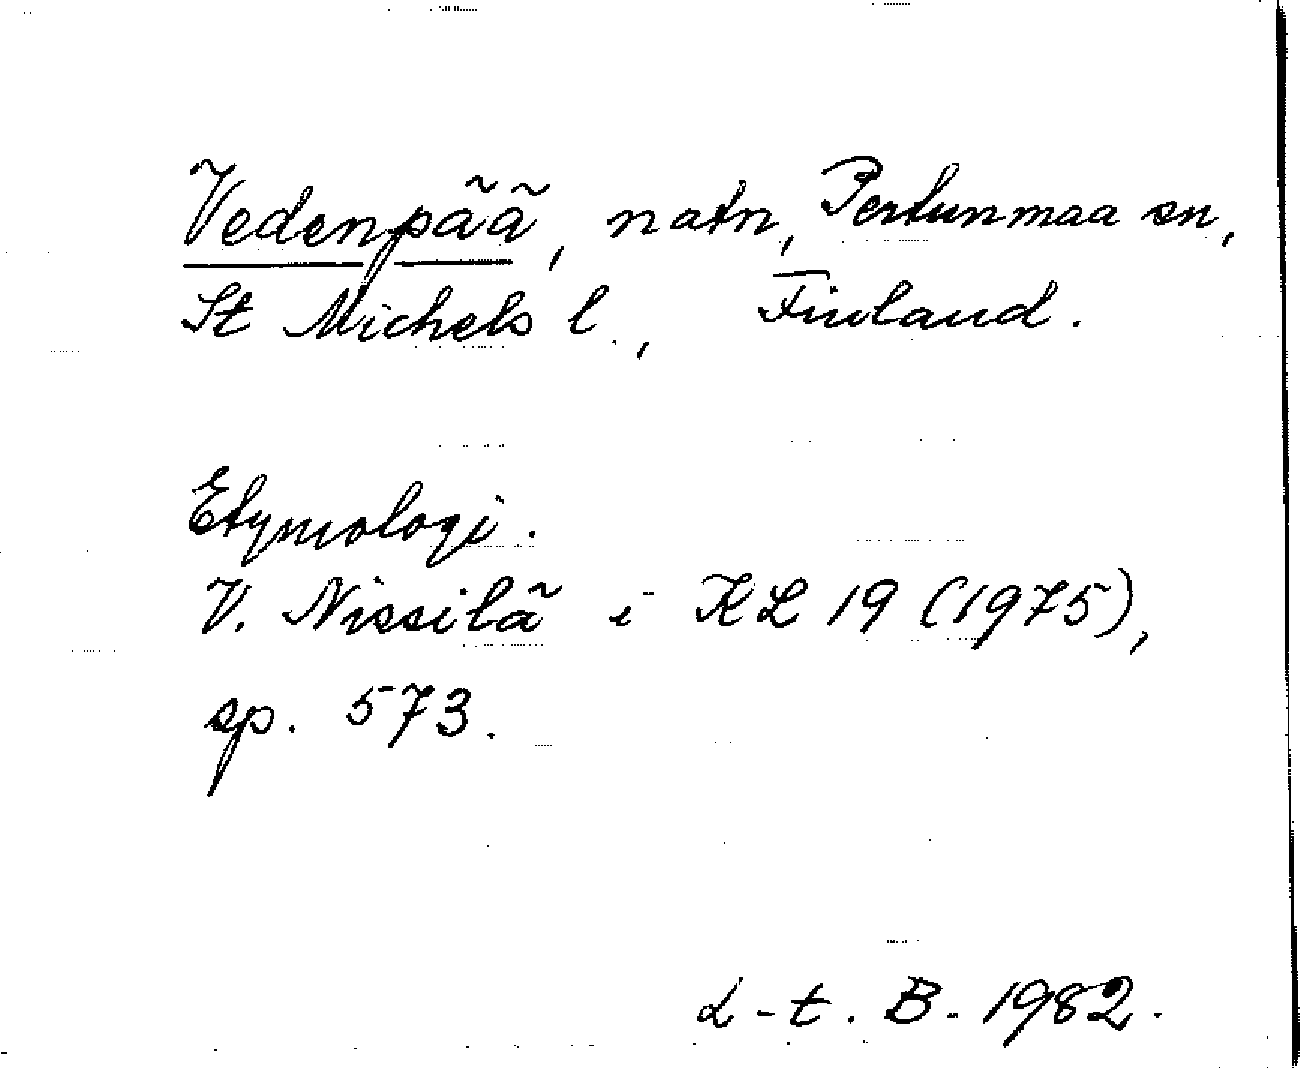 Vedenpää, natn, Pertunmaa sn,
St Michels l., Finland.
Etymologi.
V. Nissilä i KL 19 (1975),
sp. 573.
L-t. B. 1982.